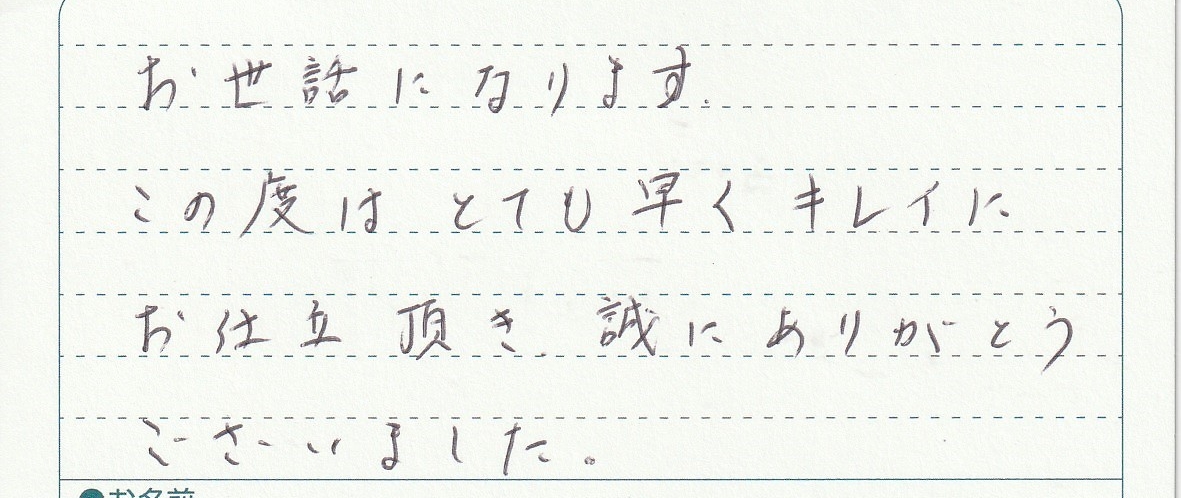 お世話になります.
この度はとても早くキレイに
お仕立頂き、誠にありがとう
ございました。
●お名前